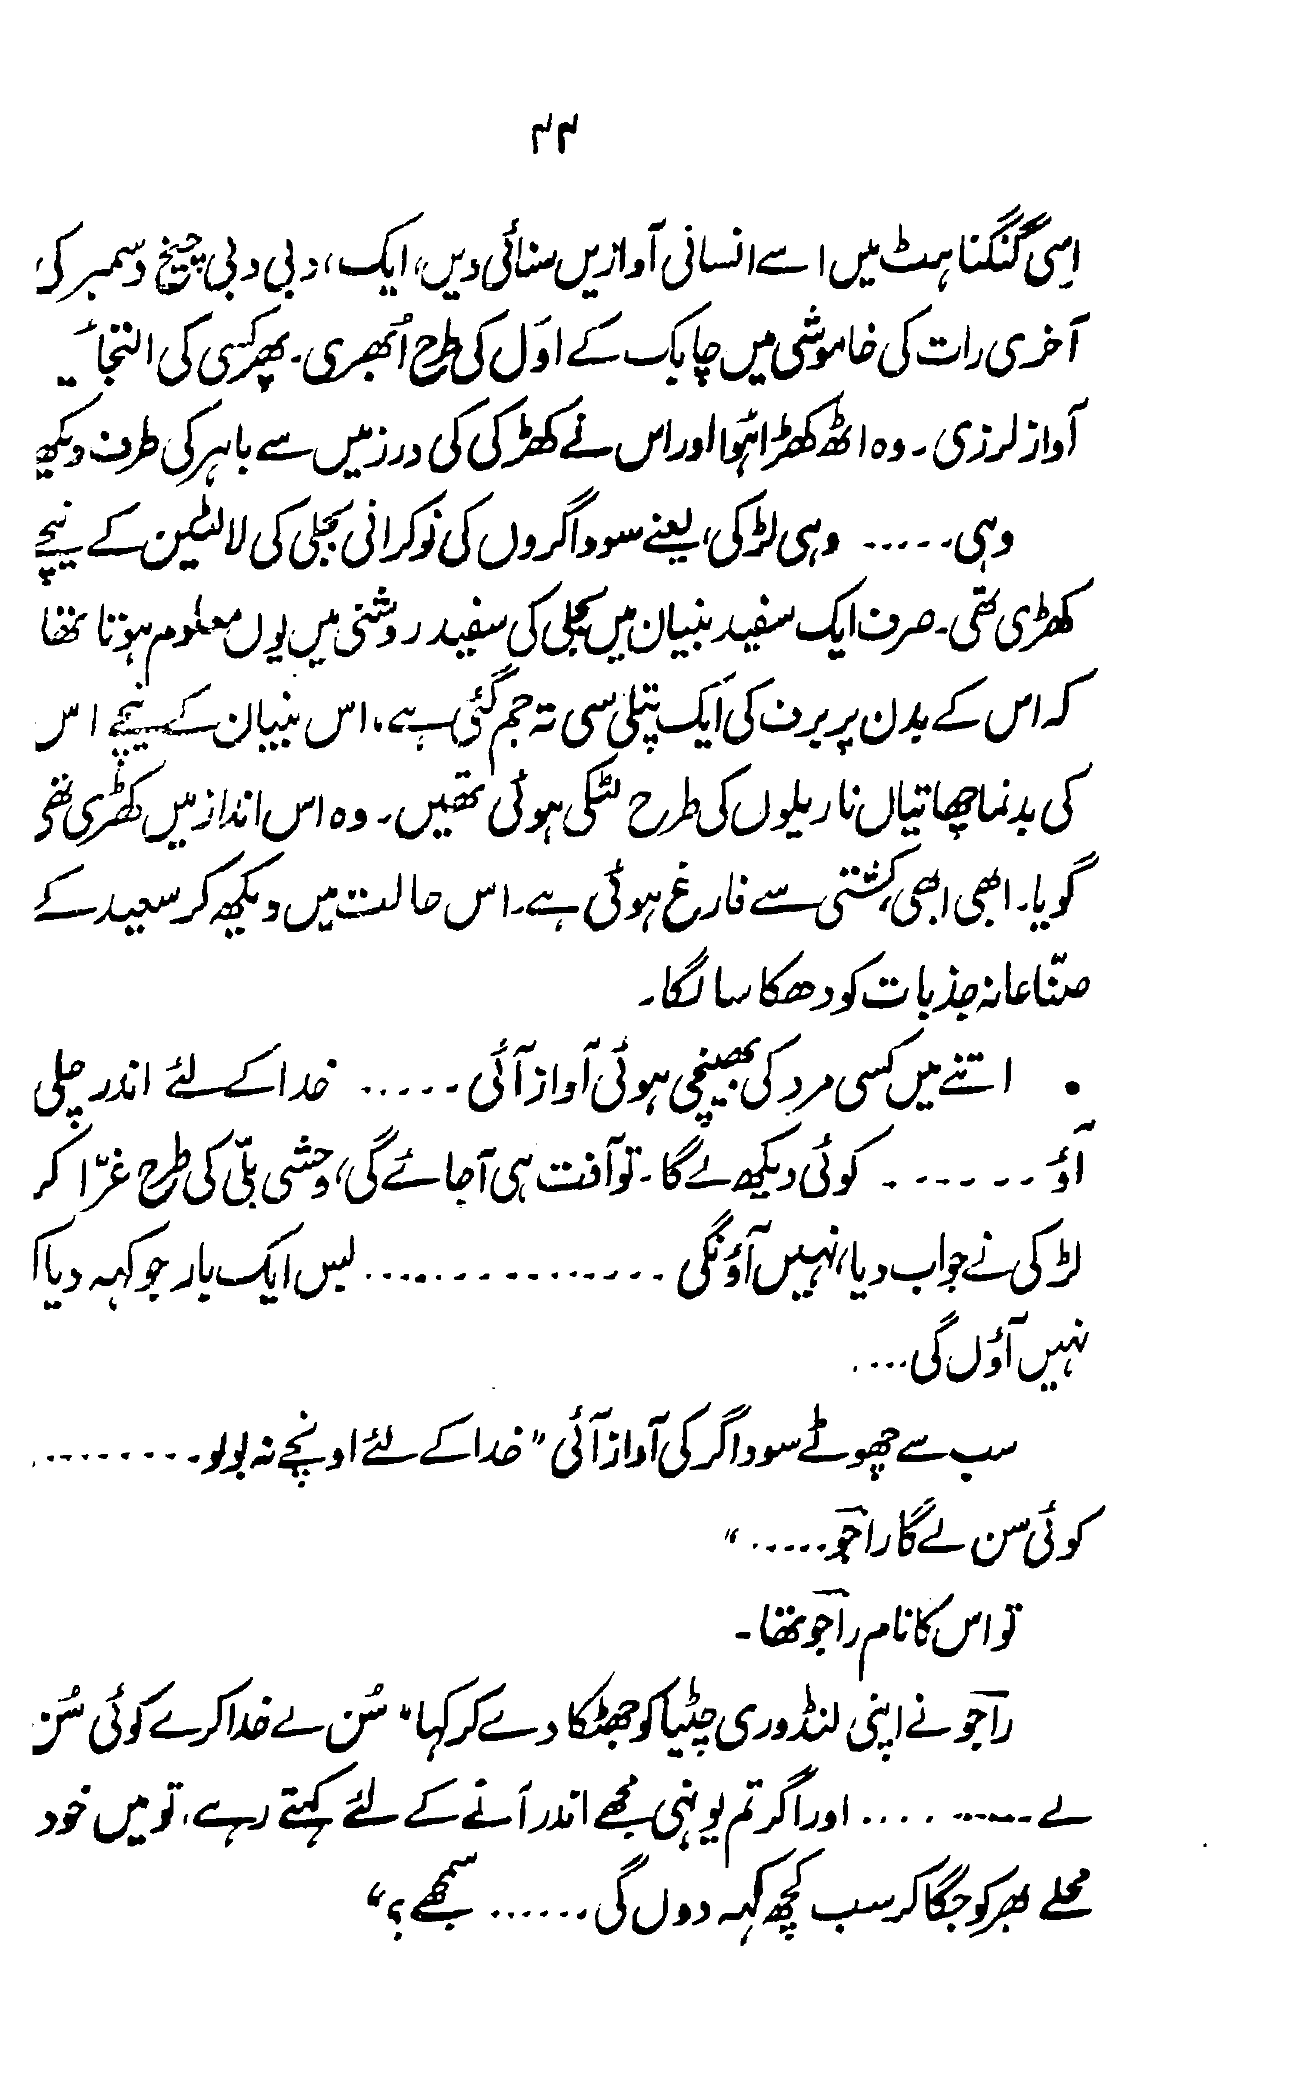 ۴۴
اِسی گنگناہٹ میں اسے انسانی آوازیں سنائی دیں، ایک، دبی دبی چیخ دسمبر کی
آخری رات کی خاموشی میں چابک کے اوّل کی طرح اُبھری۔ پھر کسی کی التجائیہ
آواز لرزی۔ وہ اٹھ کھڑا ہُوا اور اس نے کھڑکی کی درز میں سے باہر کی طرف دیکھ
وہی..... وہی لڑکی، یعنے سوداگروں کی نوکرانی بجلی کی لالٹین کے نیچے
کھڑی تھی۔ صرف ایک سفید بنیان میں بجلی کی سفید روشنی میں یوں معلوم ہوتا تھا
کہ اس کے بدن پر برف کی ایک پتلی سی تہ جم گئی ہے، اس بنیان کے نیچے اس
کی بدنما چھاتیاں ناریلوں کی طرح لٹکی ہوئی تھیں۔ وہ اس انداز میں کھڑی تھی
گویا۔ ابھی ابھی کشتی سے فارغ ہوئی ہے۔ اس حالت میں دیکھ کر سعید کے
صنّاعانہ جذبات کو دھکا سا لگا۔
• اتنے میں کسی مرد کی بھینچی ہوئی آواز آئی ..... خدا کے لئے اندر چلی
آؤ ....... کوئی دیکھ لے گا۔ تو آفت ہی آجائے گی، وحشی بلّی کی طرح غرّا کر
لڑکی نے جواب دیا، نہیں آؤنگی .................. بس ایک بار جو کہہ دیا کہ
نہیں آؤں گی....
سب سے چھوٹے سوداگر کی آواز آئی ”خدا کے لئے اونچے نہ بولو..........
کوئی سن لے گا راجو......“
تو اس کا نام راجو تھا۔
راجو نے اپنی لنڈوری چٹیا کو جھٹکا دے کر کہا ”سُن لے خدا کرے کوئی سُن
لے........ .... اور اگر تم یونہی مجھے اندر آنے کے لئے کہتے رہے، تو میں خود
محلے بھر کو جگا کر سب کچھ کہہ دوں گی...... سمجھے؟“